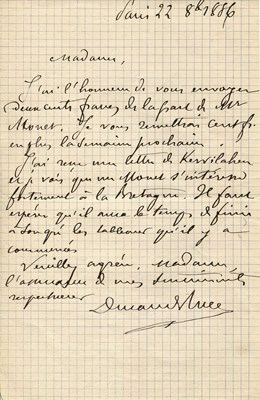 Paris 22 8bre 1886
Madame,
J'ai l'honneur de vous envoyer
deux cents francs de la part de Mr
Monet. Je vous remettrai cent fs
en plus la semaine prochaine.
J'ai reçu une lettre de Kervilahen
et je vois que Monet s'intéresse
fortement à la Bretagne. Il faut
espérer qu'il aura le temps de finir
à son gré les tableaux qu'il y a
commencés
Veuillez agréer, Madame,
l'assurance de mes sentiments
respectueux
Durand-Ruel